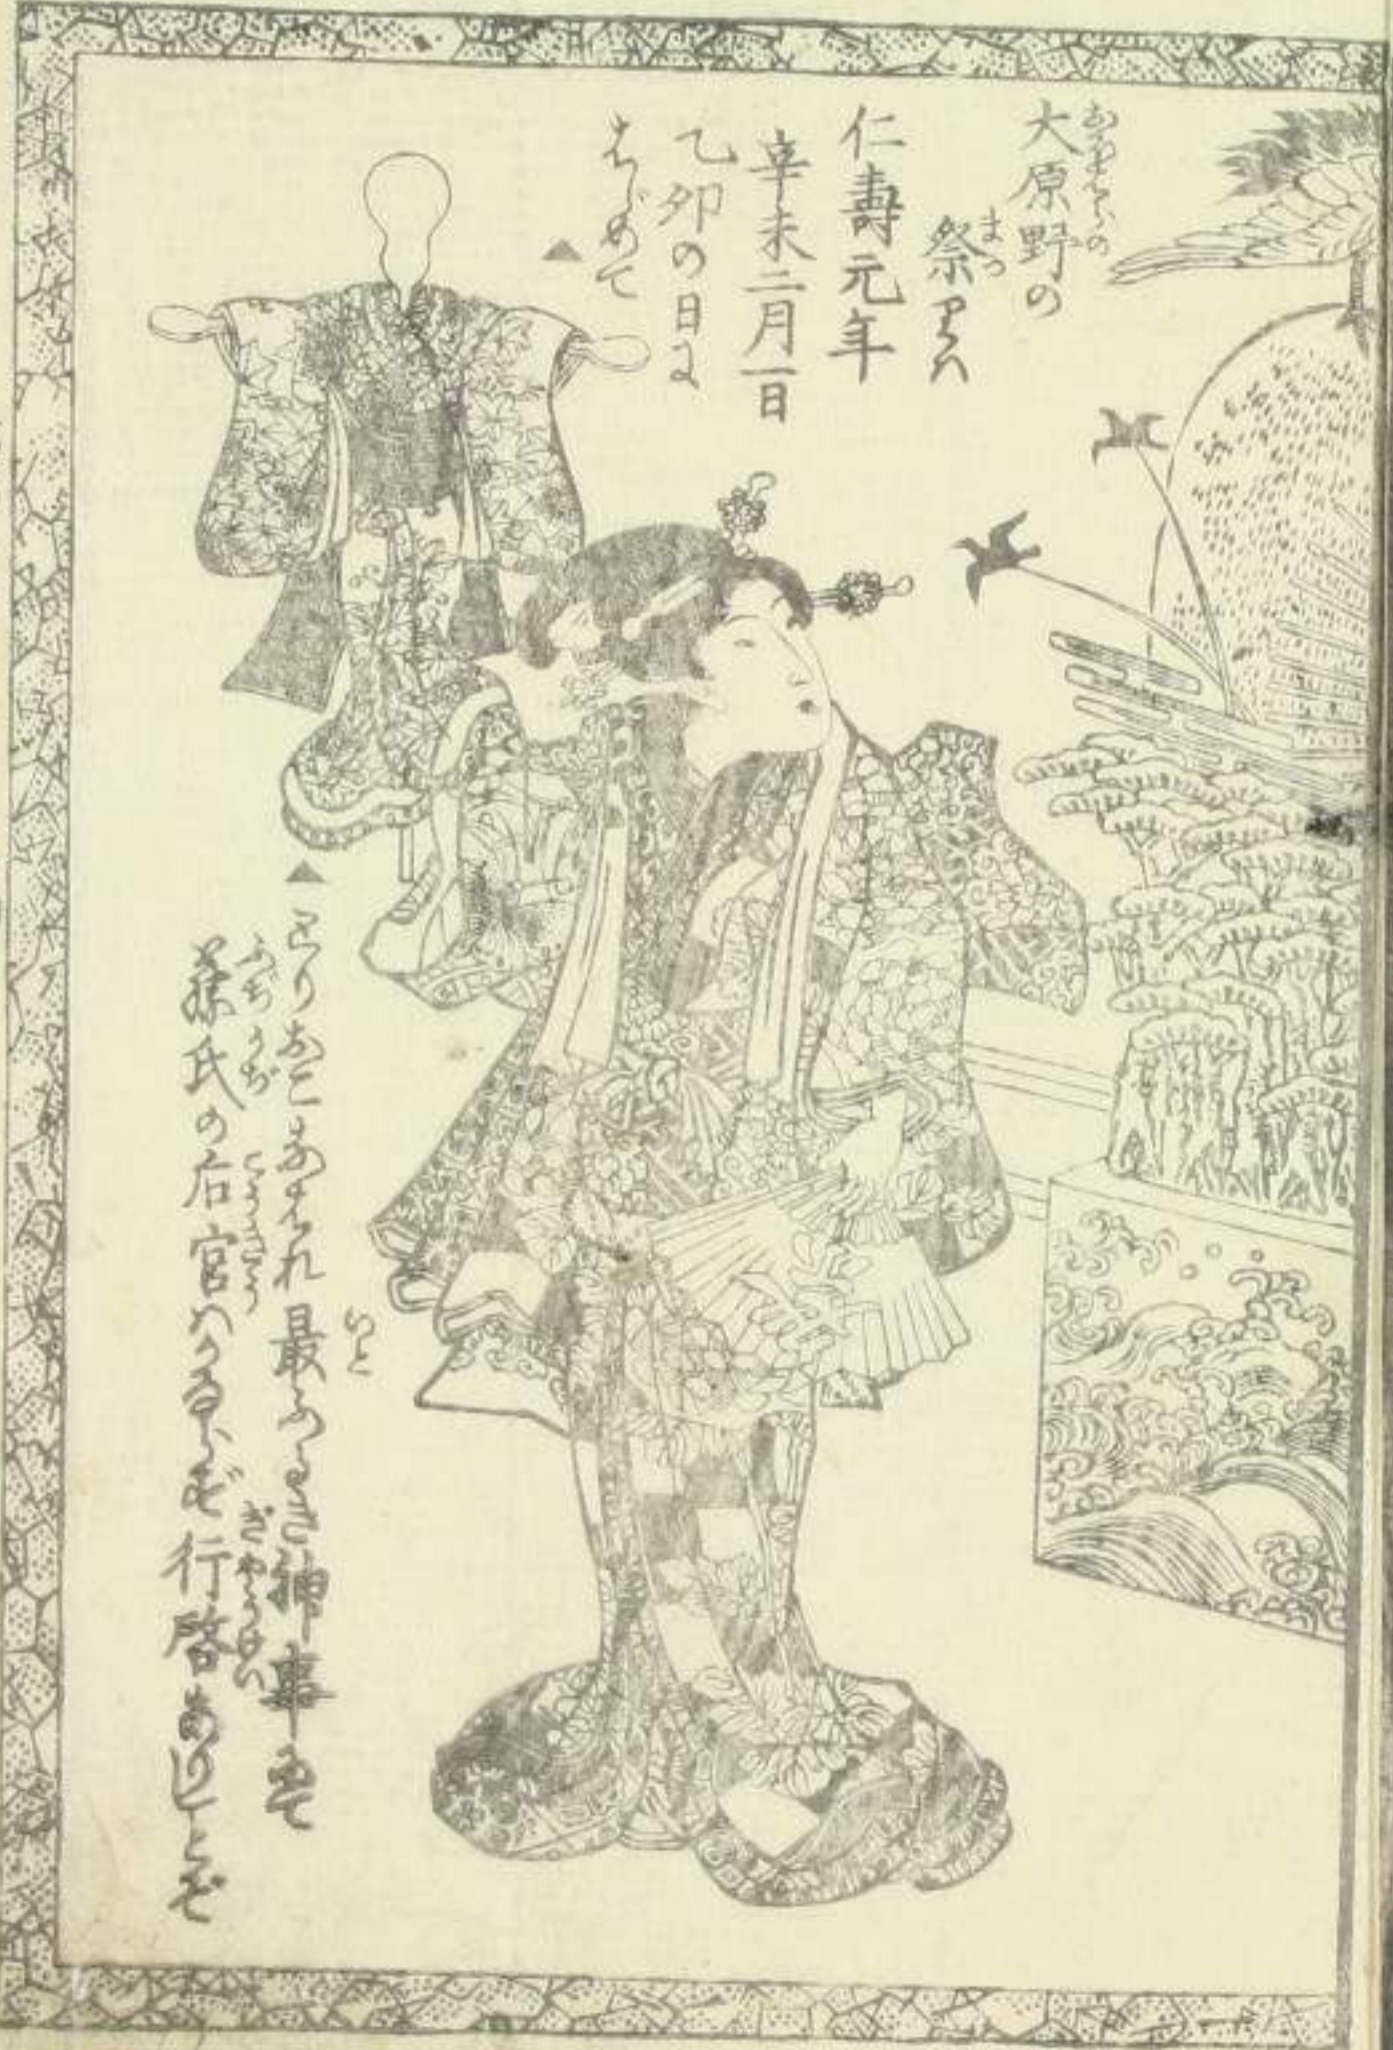 大原野の
祭りハ
仁壽元年
辛未二月一日
乙卯の日に
はじめて▲
▲とりおこなはれ最ふるき神事にて
藤氏の后宮ハかならず行啓ありしとぞ